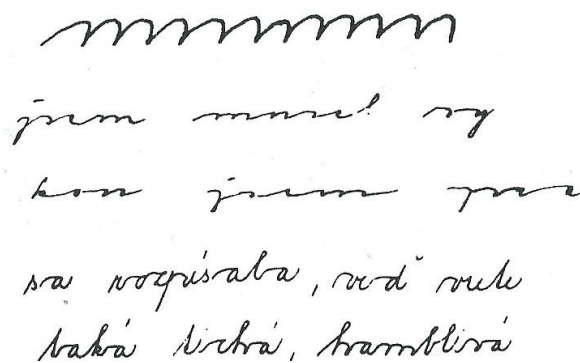 jsem musel vy
kon jsem pra
sa rozpísala, veď vule
taká tichá, hamblivá